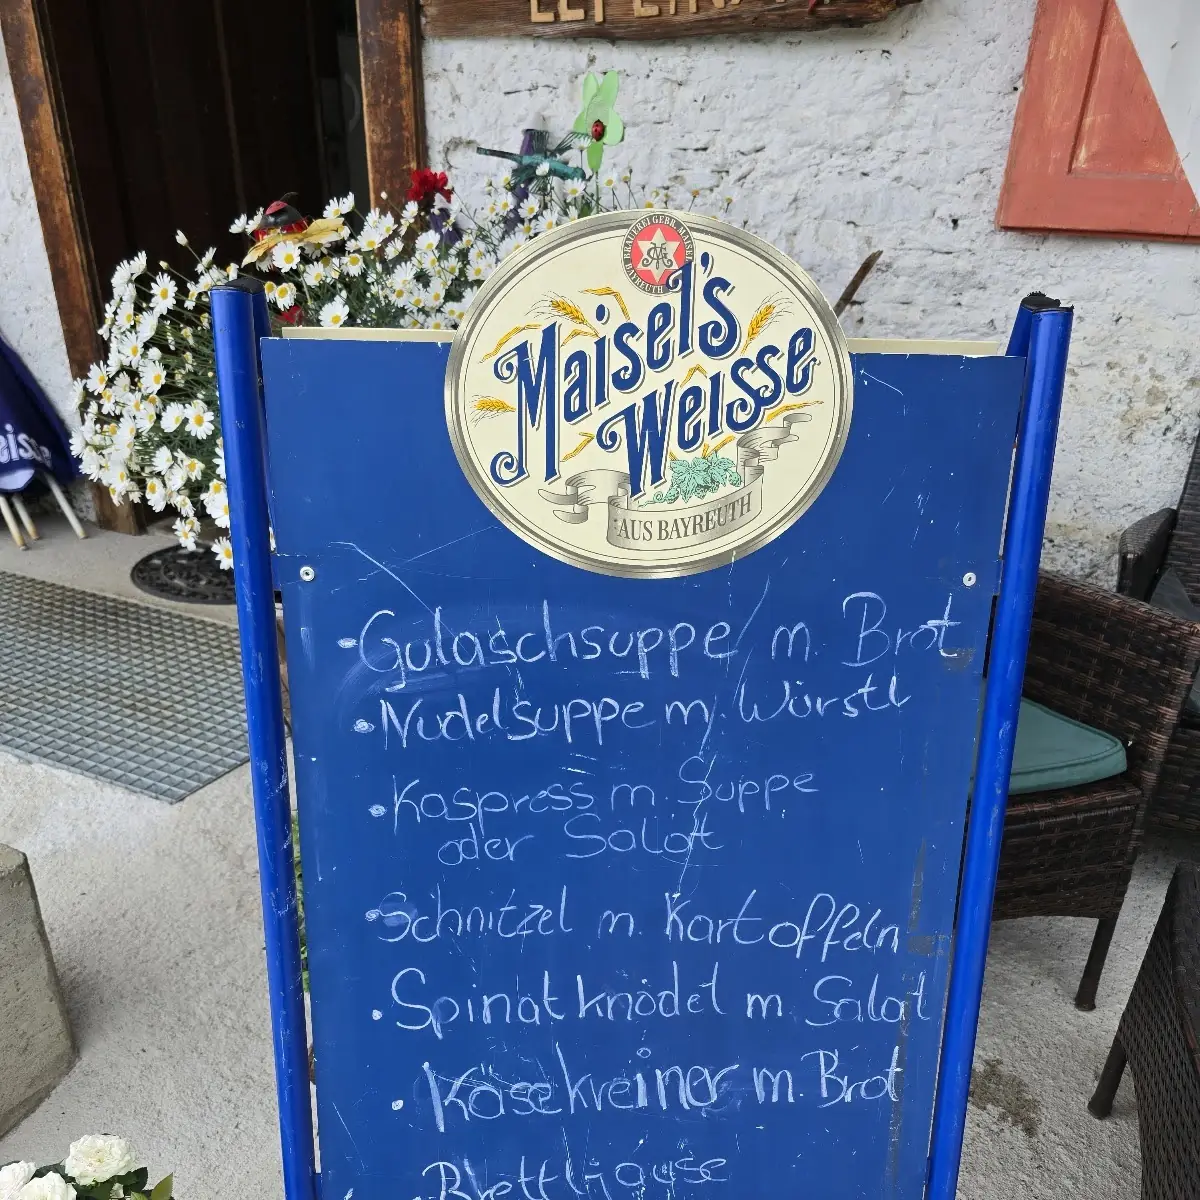 BRAUEREI GEBR. MAISEL
BAYREUTH
Maisel's
Weisse
AUS BAYREUTH
eiss
• Gulaschsuppe m. Brot
• Nudelsuppe m. Würstl
• Kaspress m. Suppe
oder Salat
• Schnitzel m. Kartoffeln
• Spinatknödel m. Salat
• Käsekreiner m. Brot
Brettljause